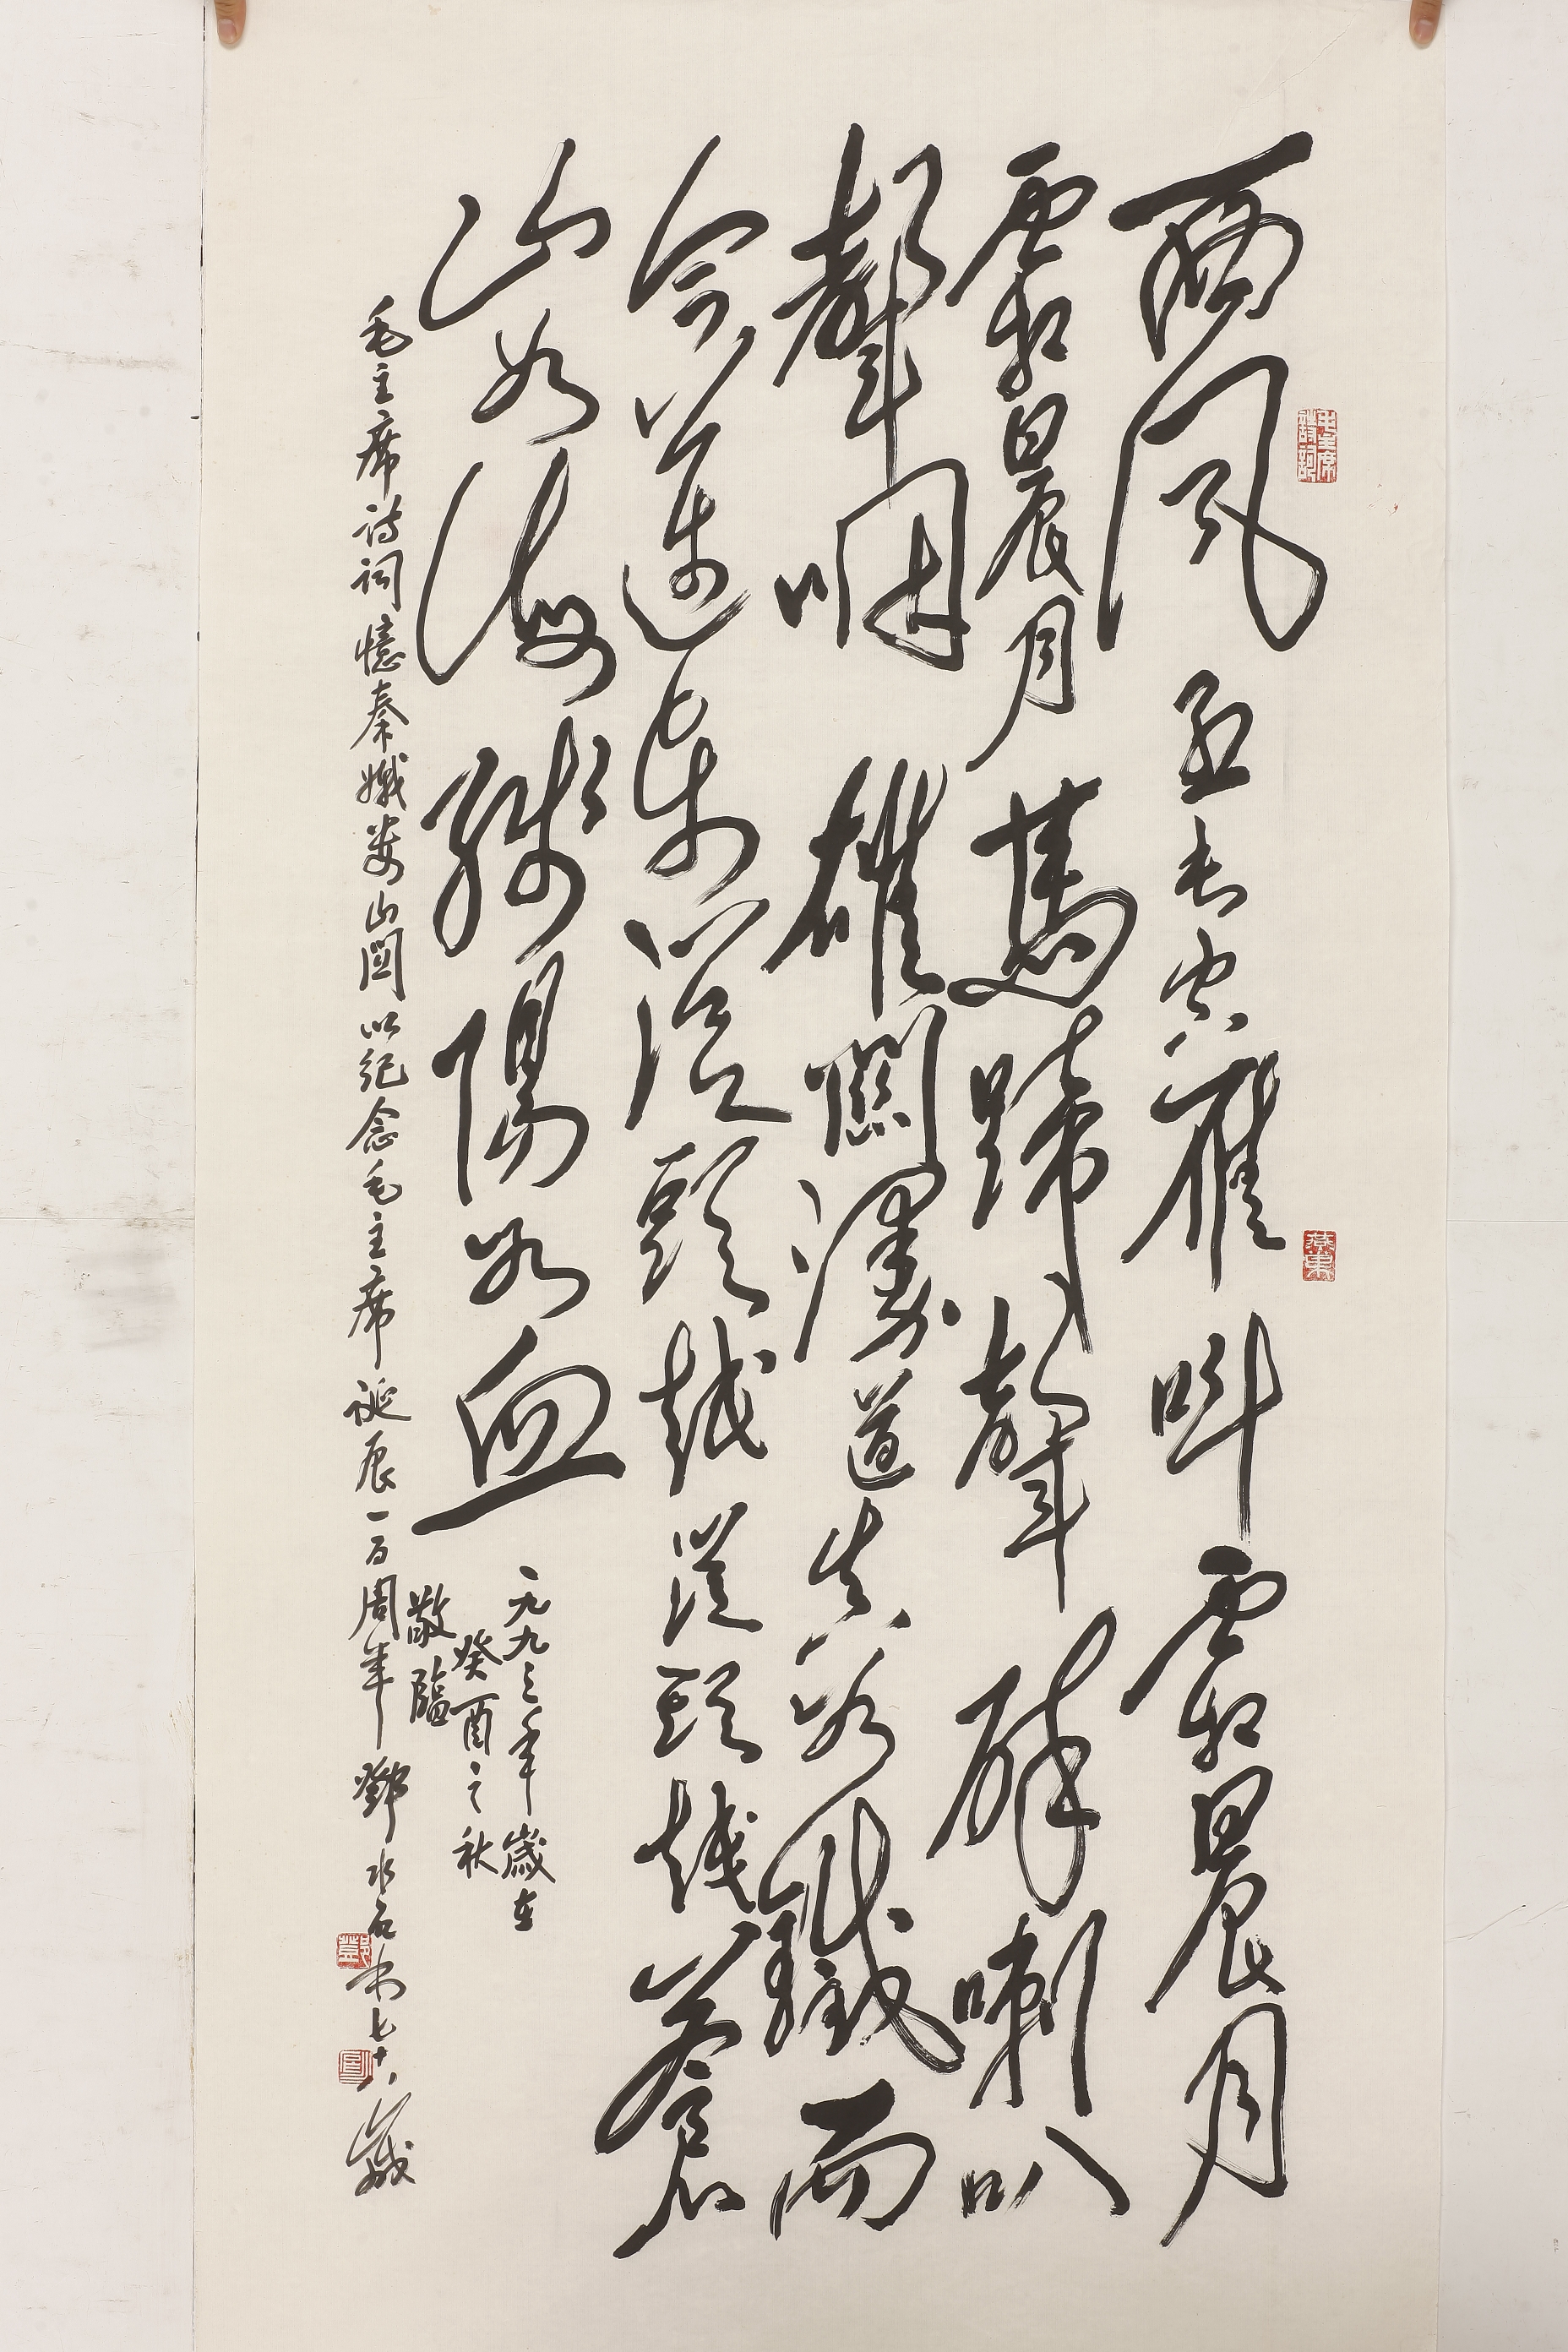 西风烈长空雁叫霜晨月
霜晨月馬蹄聲碎喇叭
聲咽雄關漫道真如鐵而
今邁步从头越從頭越蒼
山如海殘陽如血
一九九三年歲在
癸酉之秋
敬臨
毛主席诗词憶秦娥娄山関以纪念毛主席诞辰一百周年鄧水石书七十八歲
毛主席
詩詞